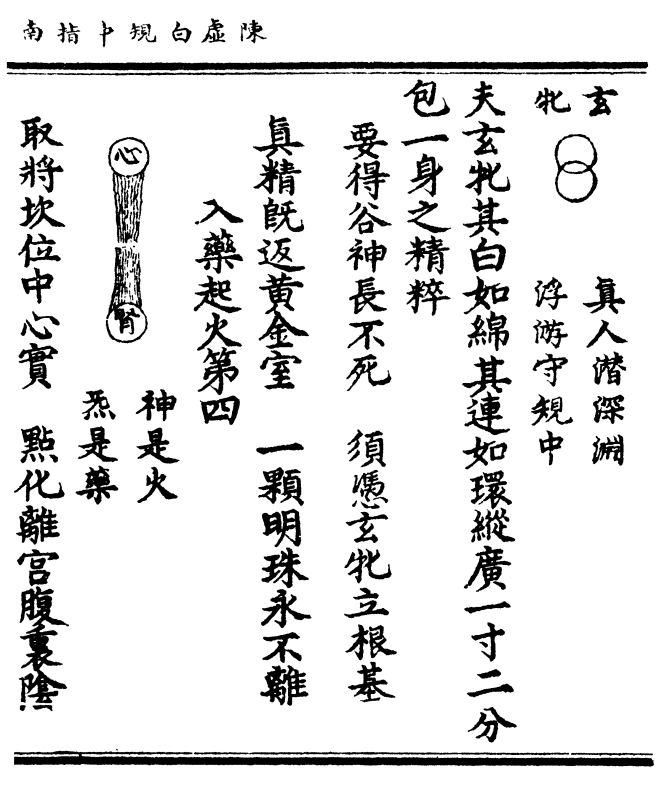 陳虛白規中指南
玄牝
真人潛深淵
浮游守規中
夫玄牝其白如綿其連如環縱廣一寸二分
包一身之精粹
要得谷神長不死 須憑玄牝立根基
真精既返黃金室 一顆明珠永不離
入藥起火第四
心
腎
神是火
炁是藥
取將坎位中心實 點化離宮腹裏陰